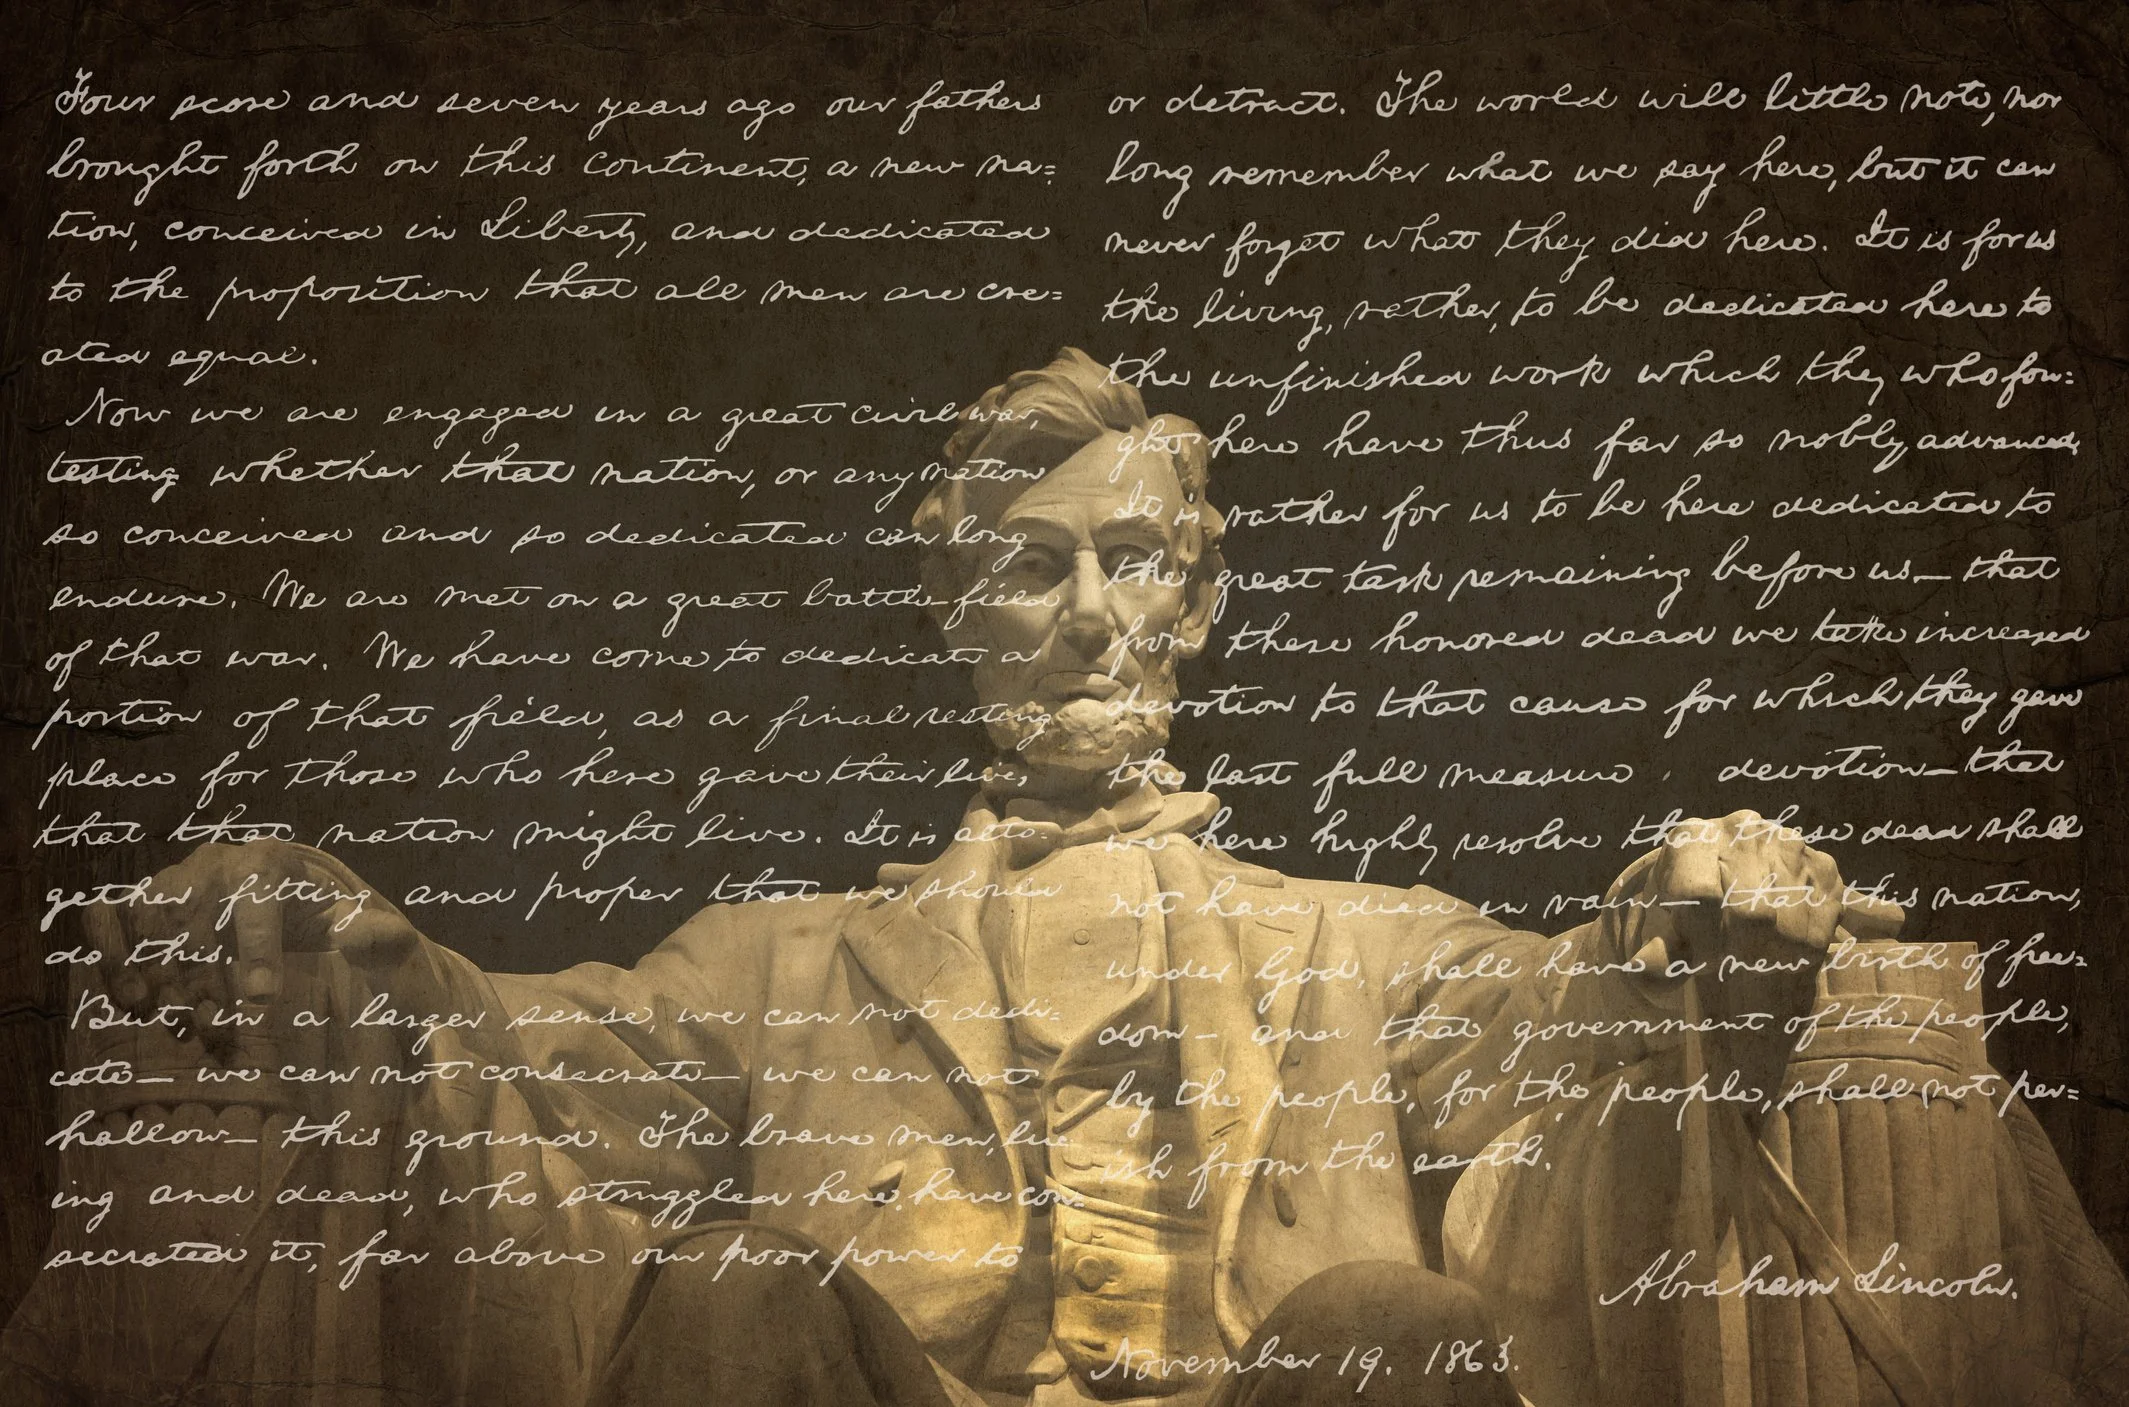 Four score and seven years ago our fathers
brought forth on this continent, a new na=
tion, conceived in Liberty, and dedicated
to the proposition that all men are cre=
ated equal.
Now we are engaged in a great civil war,
testing whether that nation, or any nation
so conceived and so dedicated can long
endure. We are met on a great battle-field
of that war. We have come to dedicate a
portion of that field, as a final resting
place for those who here gave their lives
that that nation might live. It is alto=
gether fitting and proper that we should
do this.
But, in a larger sense, we can not dedi=
cate— we can not consecrate— we can not
hallow— this ground. The brave men, liv
ing and dead, who struggled here, have con=
secrated it, far above our poor power to
or detract. The world will little note, nor
long remember what we say here, but it can
never forget what they did here. It is for us
the living, rather, to be dedicated here to
the unfinished work which they who fou=
ght here have thus far so nobly advanced.
It is rather for us to be here dedicated to
the great task remaining before us— that
from these honored dead we take increased
devotion to that cause for which they gave
the last full measure devotion— that
we here highly resolve that these dead shall
not have died in vain— that this nation,
under God, shall have a new birth of free=
dom— and that government of the people,
by the people, for the people, shall not per=
ish from the earth.
Abraham Lincoln.
November 19. 1863.